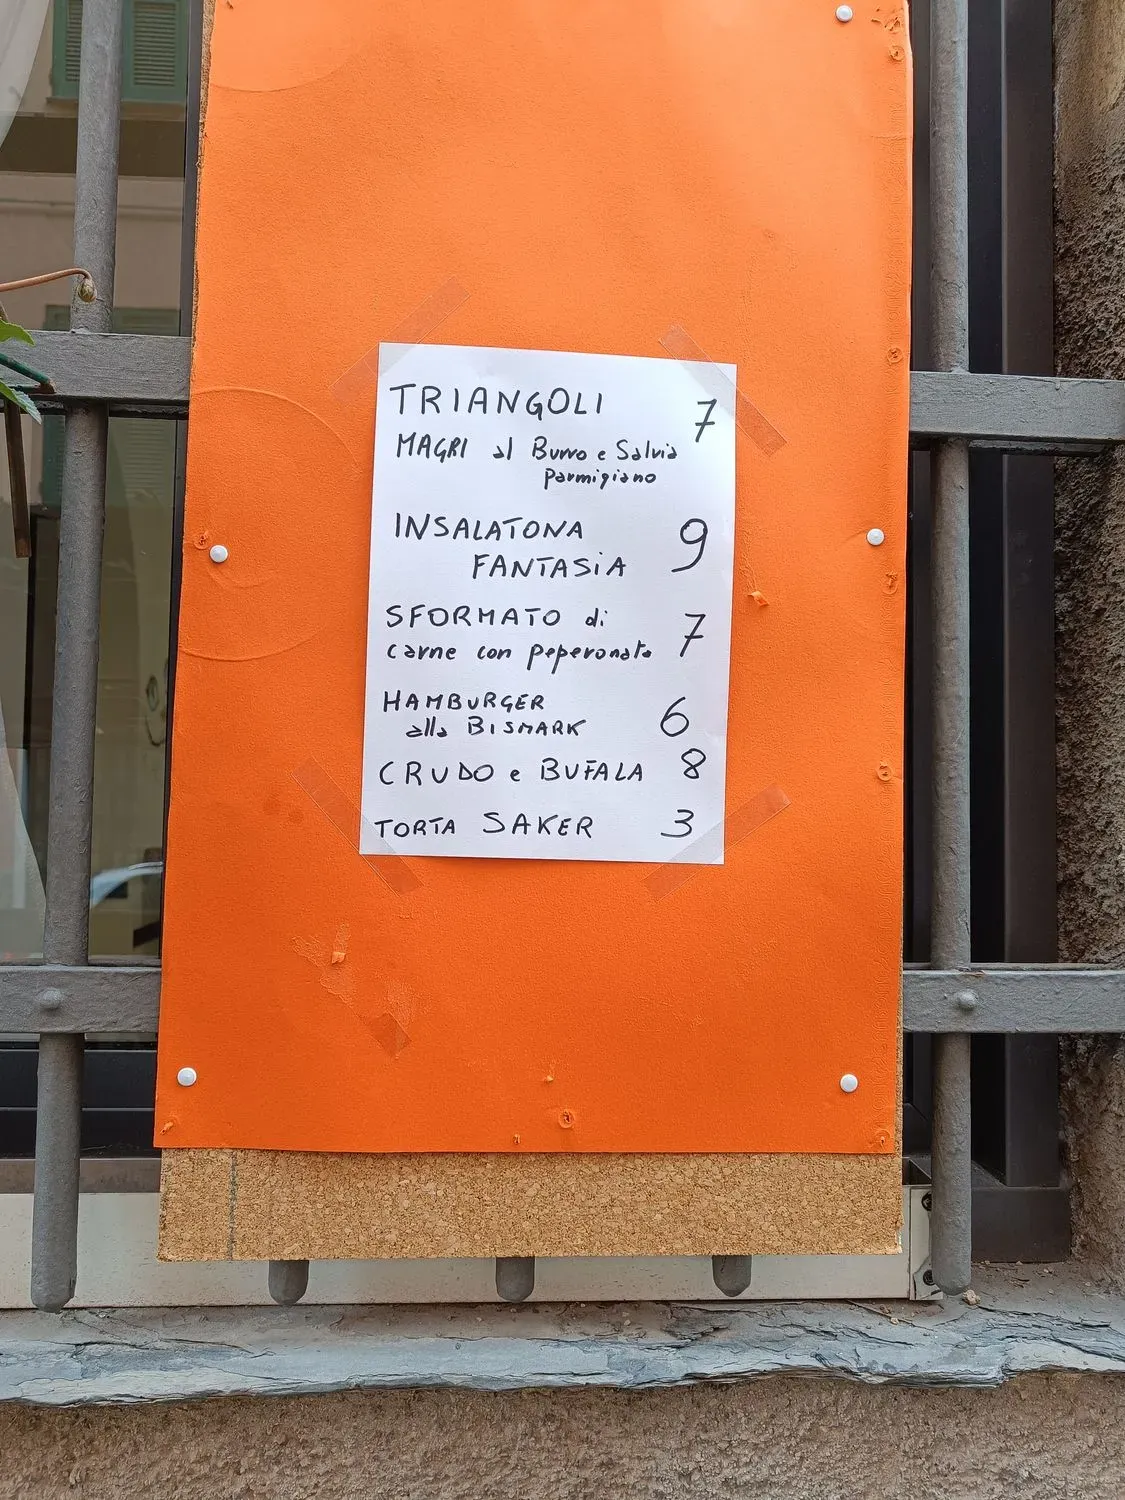 TRIANGOLI 7
MAGRI al Burro e Salvia
parmigiano
INSALATONA 9
FANTASiA
SFORMATO di 7
carne con peperonata
HAMBURGER 6
alla BISMARK
CRUDO e BUFALA 8
TORTA SAKER 3